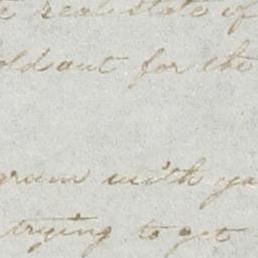 real state of
old out for the
with you
trying to get